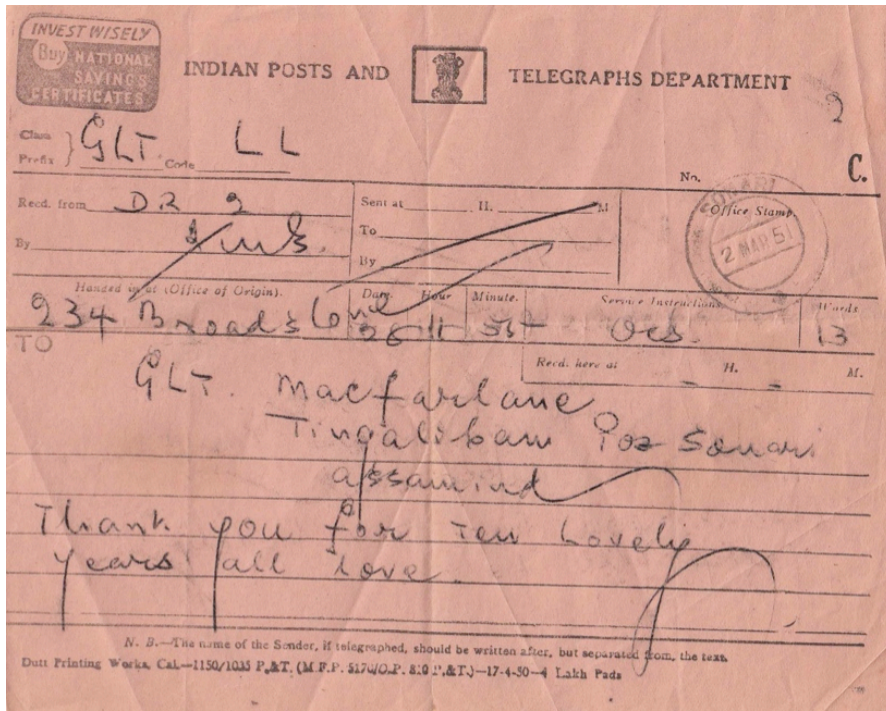 INVEST WISELY
Buy NATIONAL
SAVINGS
CERTIFICATES
INDIAN POSTS AND TELEGRAPHS DEPARTMENT
Class
Prefix } GLT. Code LL
No. C.
Recd. from DR 2
By
Sent at H. M
To
By
Office Stamp.
SONARI
2 MAR 51
Handed in at (Office of Origin). Date. Hour Minute. Service Instructions Words
234 Broadstone 13
TO
Recd. here at H. M.
GLT. Macfarlane
Tingalibam Poz Sonari
assamind
Thank you for Ten Lovely
years all love
N. B.—The name of the Sender, if telegraphed, should be written after, but separated from, the text.
Dutt Printing Works, Cal.—1150/1035 P.&T. (M F.P. 5170/O.P. 810 P.&T.)—17-4-50—4 Lakh Pads